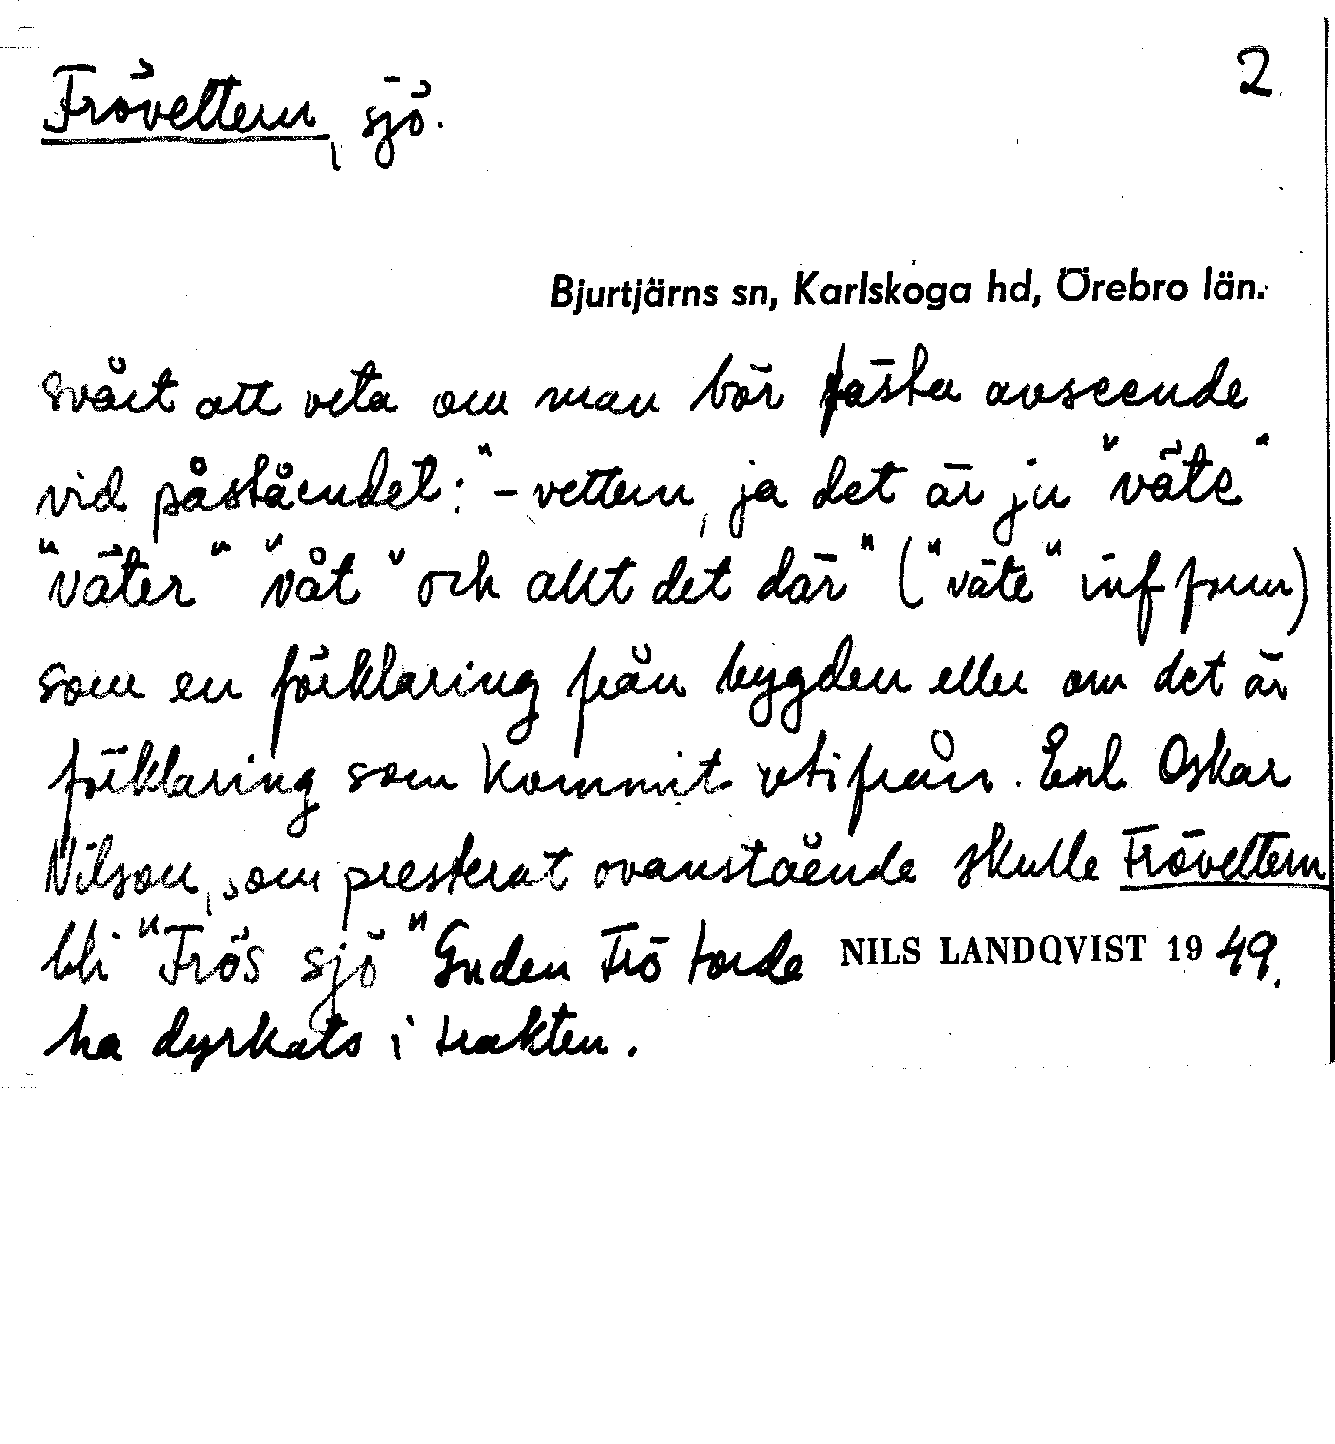 Frövettern, sjö.
2
Bjurtjärns sn, Karlskoga hd, Örebro län.
svårt att veta om man bör fästa avseende
vid påståendet: "-vettern, ja det är ju "väte"
"väter" "våt" och allt det där" ("väte" inf form)
som en förklaring från bygden eller om det är
förklaring som kommit utifrån. Enl Oskar
Nilson, som presterat ovanstående skulle Frövettern
bli "Frös sjö" Guden Frö torde NILS LANDQVIST 1949.
ha dyrkats i trakten.